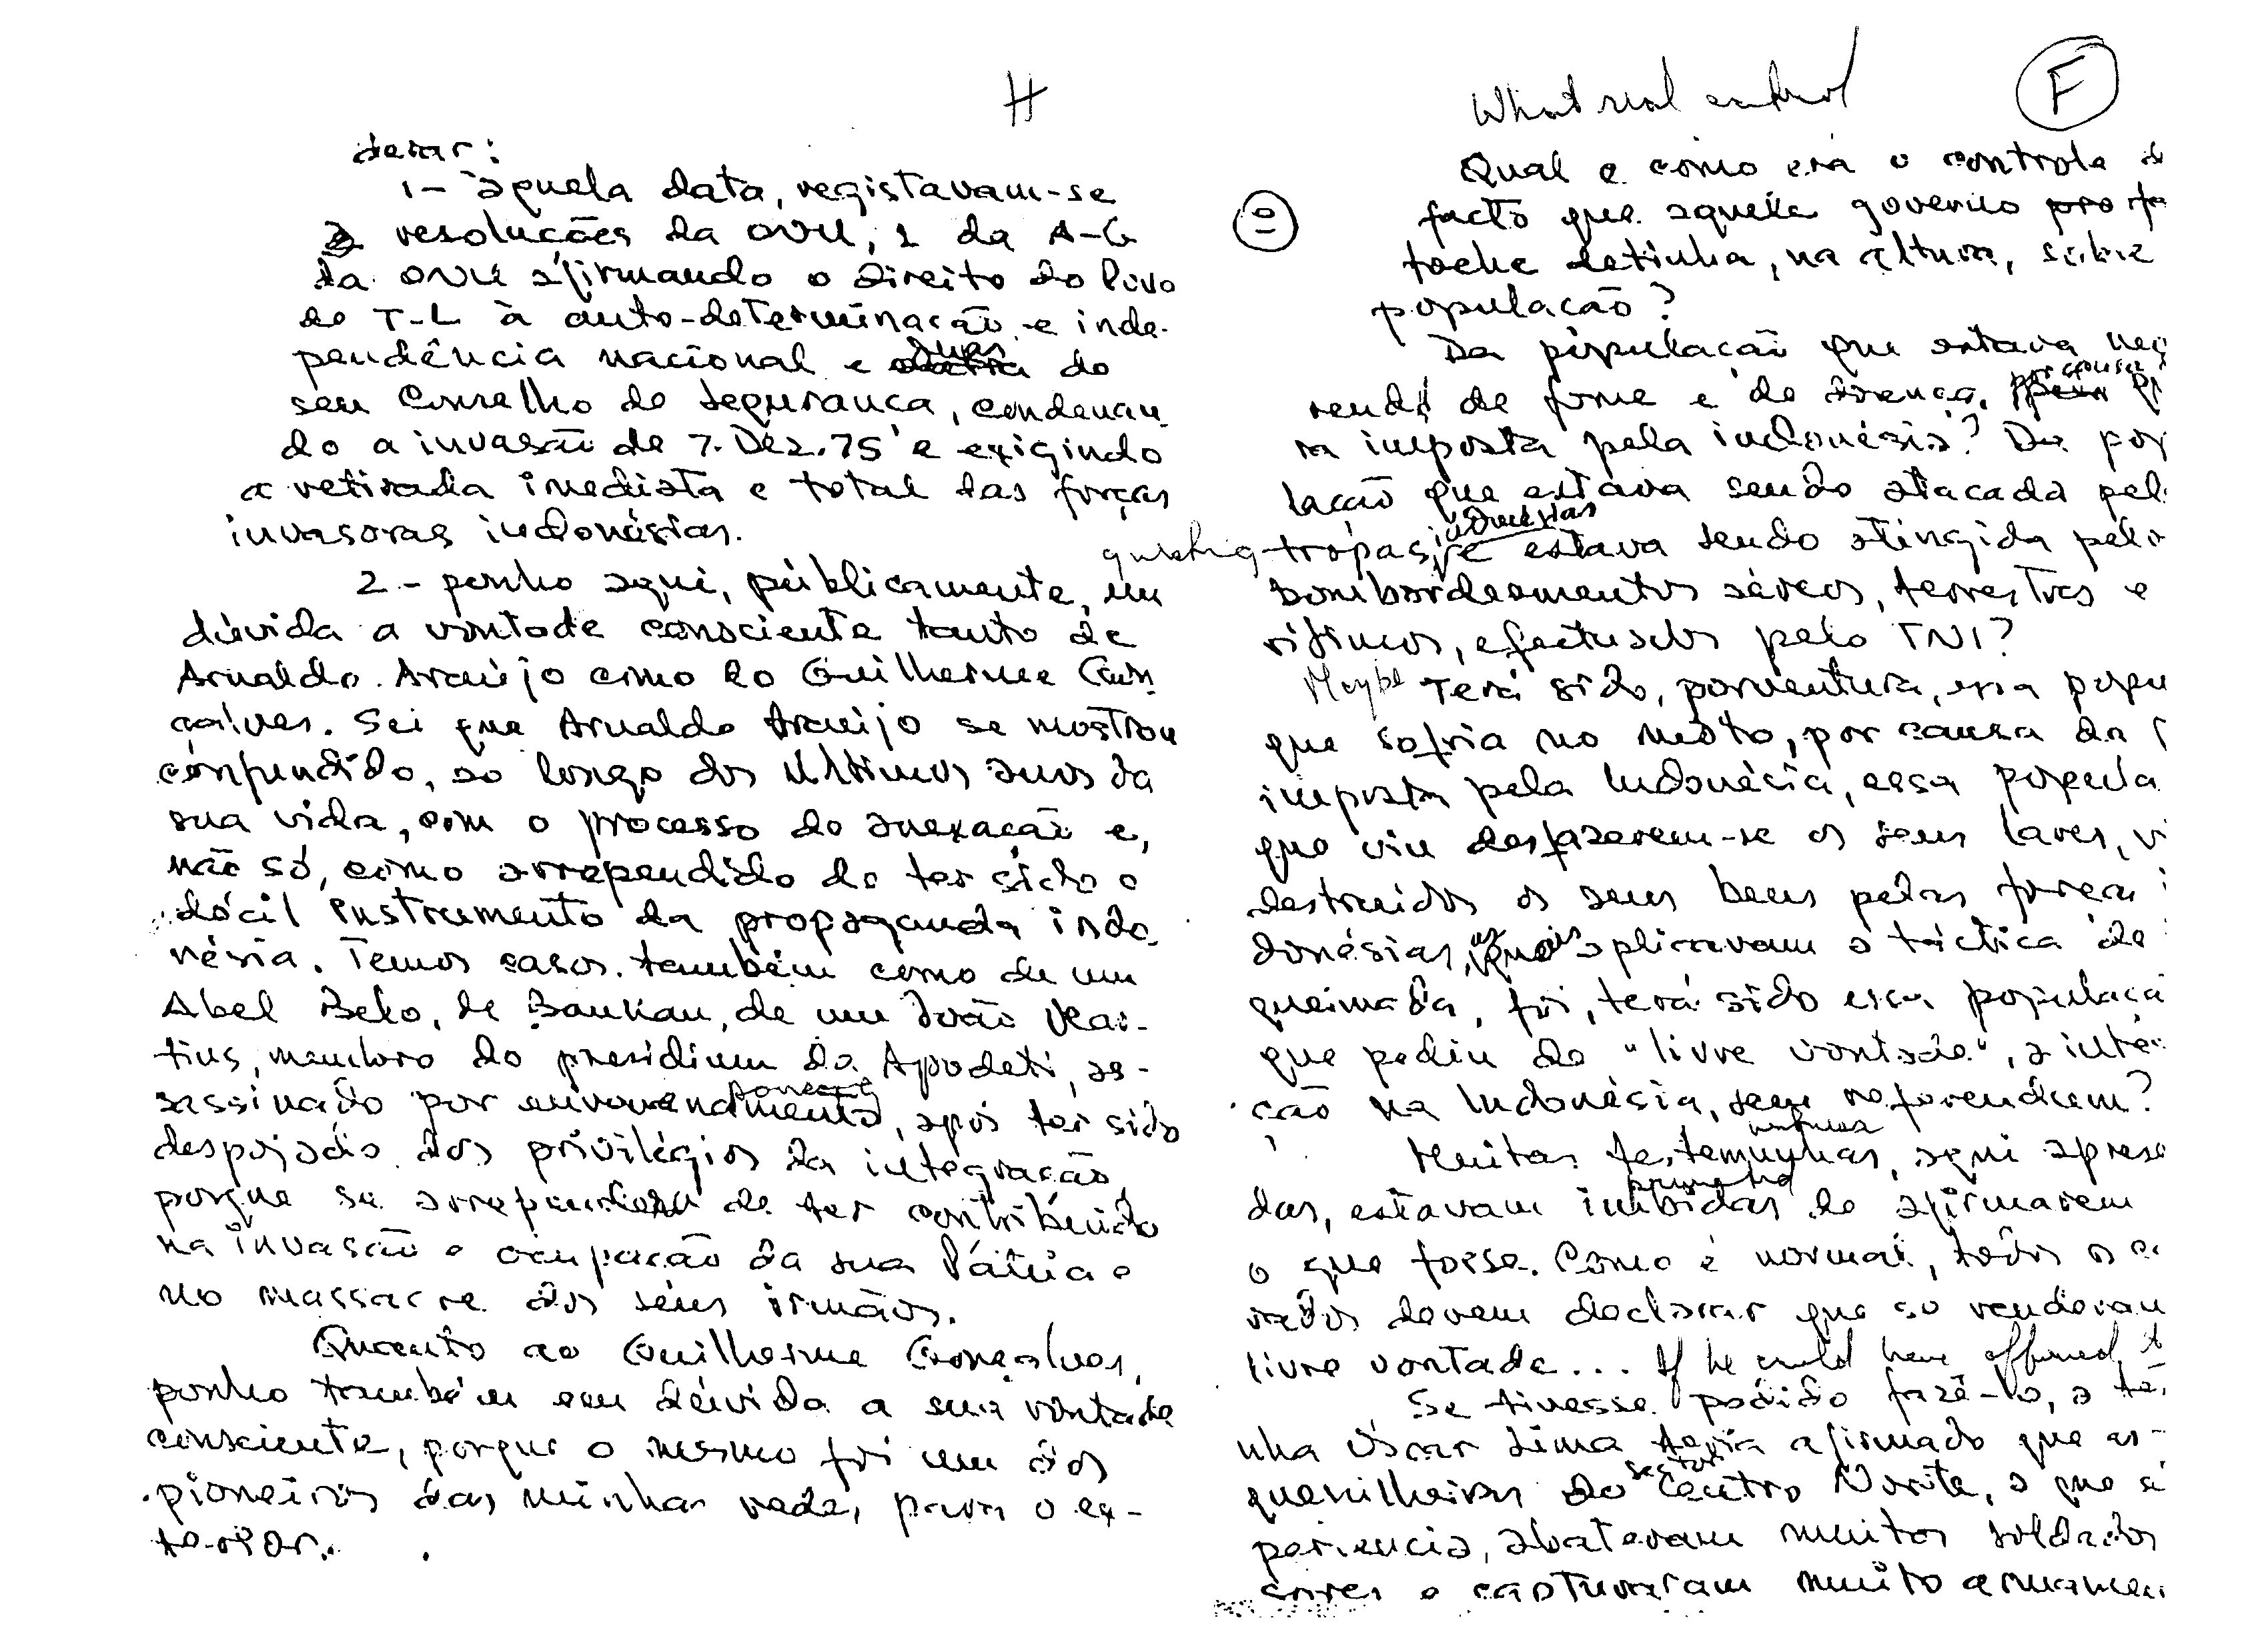 H
deixar:
1- àquela data, registavam-se
3 resoluções da ONU, 1 da A-G
da ONU afirmando o direito do Povo
de T-L à auto-determinação e inde-
pendência nacional e duas do
seu Conselho de Segurança, condenan-
do a invasão de 7.Dez.75 e exigindo
a retirada imediata e total das forças
invasoras indonésias.
2- ponho aqui, públicamente, em
dúvida a vontade consciente tanto de
Arnaldo Araújo como do Guilherme Gon
çalves. Sei que Arnaldo Araújo se mostrou
confundido, ao longo dos últimos anos da
sua vida, com o processo de anexação e,
não só, como arrependido de ter sido o
dócil instrumento da propaganda indo-
nésia. Temos casos também como de um
Abel Belo, de Baukau, de um João Mar-
tins, membro do presidium da Apodeti, as-
sassinado por envenenamento, após ter sido
despojado dos privilégios da integração
porque se arrependeu de ter contribuido
na invasão e ocupação da sua Pátria e
no massacre dos seus irmãos.
Quanto ao Guilherme Gonçalves,
ponho também em dúvida a sua vontade
consciente, porque o mesmo foi um dos
pioneiros das minhas redes para o ex-
terior.
What real control
F
Qual e como era o controle d
facto que aquele governo pro fan
toche detinha, na altura, sobre
população?
Da população que estava
rendo de fome e de doença, por causa
ra imposta pela indonésia? Da pop
lação que estava sendo atacada pel
tropas indonésias e estava sendo atingida pelo
bombardeamentos aéreos, terrestres e
rítimos, efectuados pelo TNI?
Maybe Terá sido, porventura, essa popu
que sofria no mato, por causa da
imposta pela Indonésia, essa popula
que viu desfazerem-se os seus lares, v
destruidos os seus bens pelas forças i
donésias, as quais aplicavam a táctica de
queimada, foi, terá sido essa populaçã
que pediu de "livre vontade", a inte
ção na Indonésia, sem referendum?
Muitas testemunhas, aqui aprese
das, estavam inibidas de afirmarem
o que fosse. Como é normal, todos os
rados devem declarar que so renderam
livre vontade... If he could have affirmed
Se tivesse podido fazê-lo, a te
nha Óscar Lima teria afirmado que as
guerrilheiros do sector Centro Norte, a que
pertencia, abateram muitos soldados
sores e capturaram muito armamen